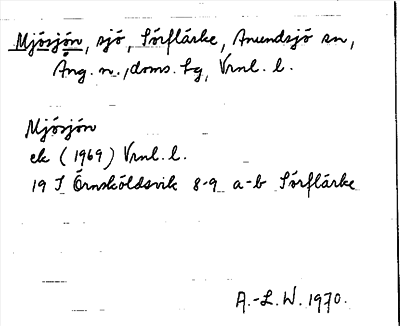 Mjösjön, sjö, Sörflärke, Anundsjö sn,
Ång. n., doms. hg, Vrnl. l.
Mjösjön
ek (1969) Vrnl. l.
19 I Örnsköldsvik 8-9 a-b Sörflärke
A.-L. W. 1970.